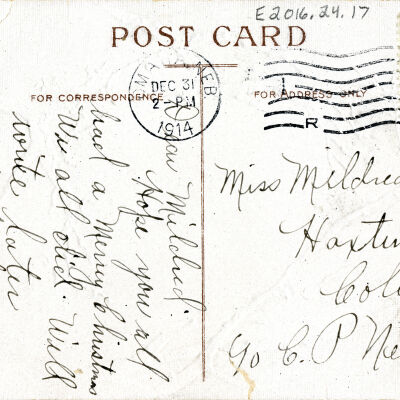 E2016.24.17
POST CARD
FOR CORRESPONDENCE
FOR ADDRESS ONLY
NEB
DEC 31
2-PM
1914
R
Mildred:
Hope you all
had a Merry Christmas
We all did. Will
write later
Miss Mildred
Haxtun
Colo
C. P.